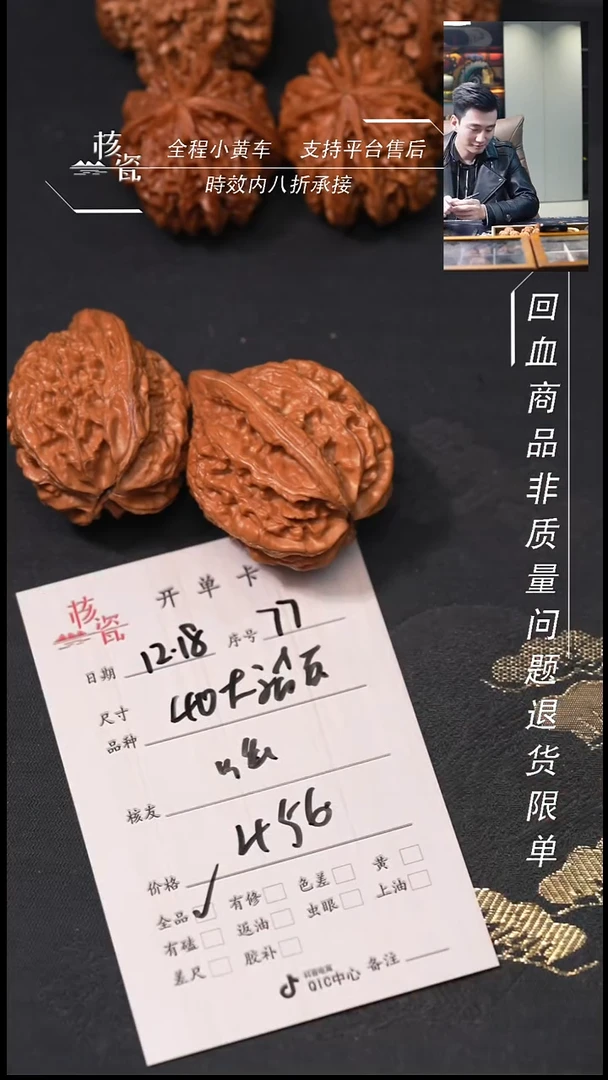 核瓷
全程小黄车 支持平台售后
時效内八折承接
回血商品非质量问题退货限单
核瓷 开单卡
日期 12.18 序号 77
尺寸 40
品种
核友
价格 456
全品 ✓ 有修 色差 黄
有磕 返油 虫眼 上油
差尺 胶补
QIC中心 备注